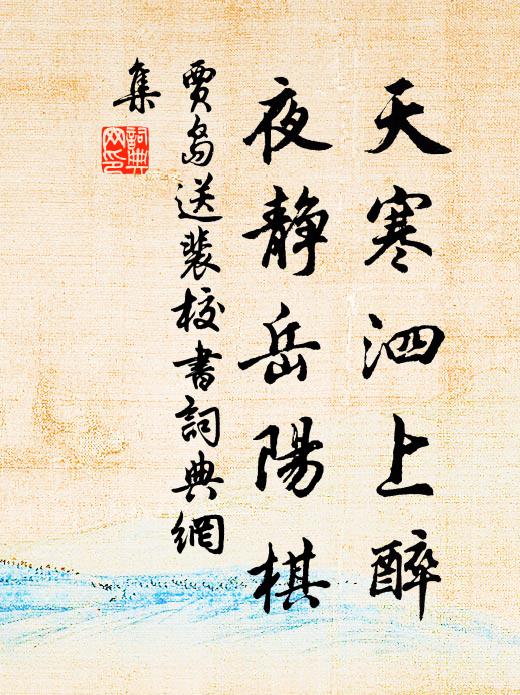 天寒泗上醉
夜静岳陽棋
賈島送裴校書詞典網
集
詞典
网印